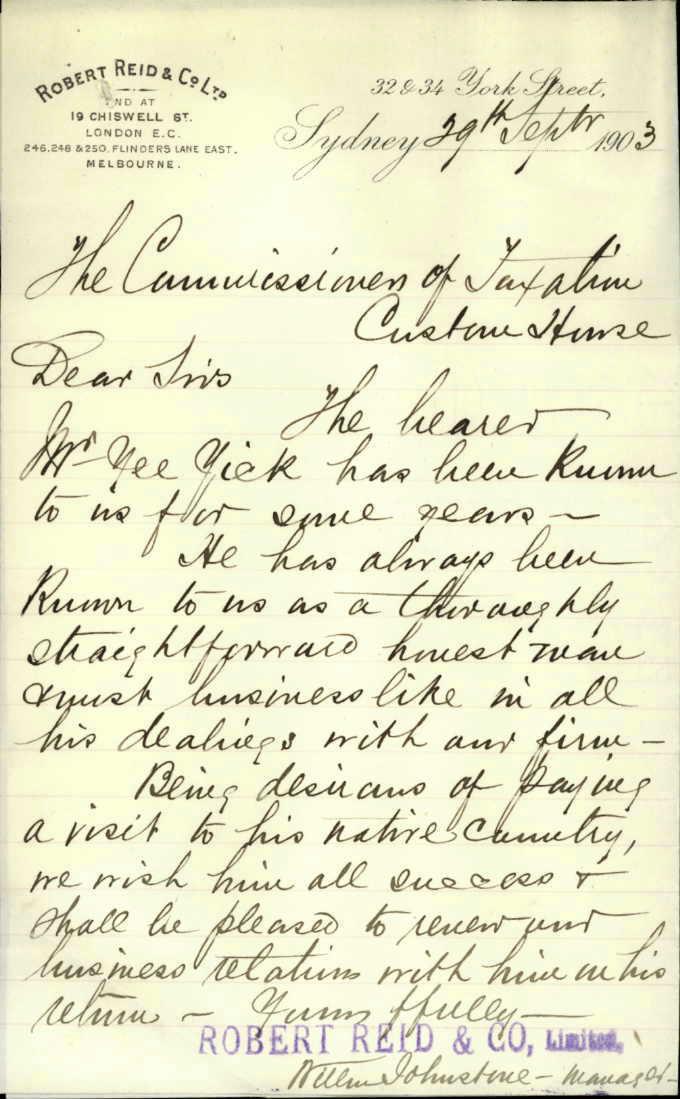 ROBERT REID & CO LTD
AND AT
19 CHISWELL ST.
LONDON E.C.
246, 248 & 250, FLINDERS LANE EAST.
MELBOURNE.
32 & 34 York Street,
Sydney 29th Septr 1903
The Commissioners of Taxation
Custom House
Dear Sirs
The bearer
Mr Yee Yick has been known
to us for some years –
He has always been
known to us as a thoroughly
straightforward honest man
& most businesslike in all
his dealings with our firm –
Being desirous of paying
a visit to his native country,
we wish him all success &
shall be pleased to renew our
business relations with him on his
return – Yours ffully –
ROBERT REID & CO, Limited.
Johnstone – Manager –